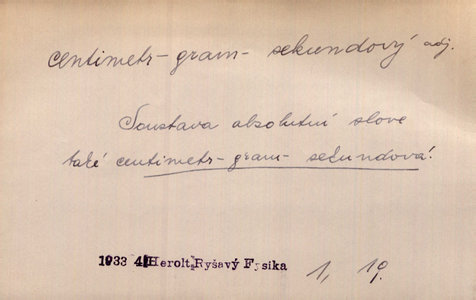 centimetr-gram-sekundový adj.
Soustava absolutní slove
také centimetr-gram-sekundová.
1933 4 Herolt-Ryšavý Fysika 1, 19.